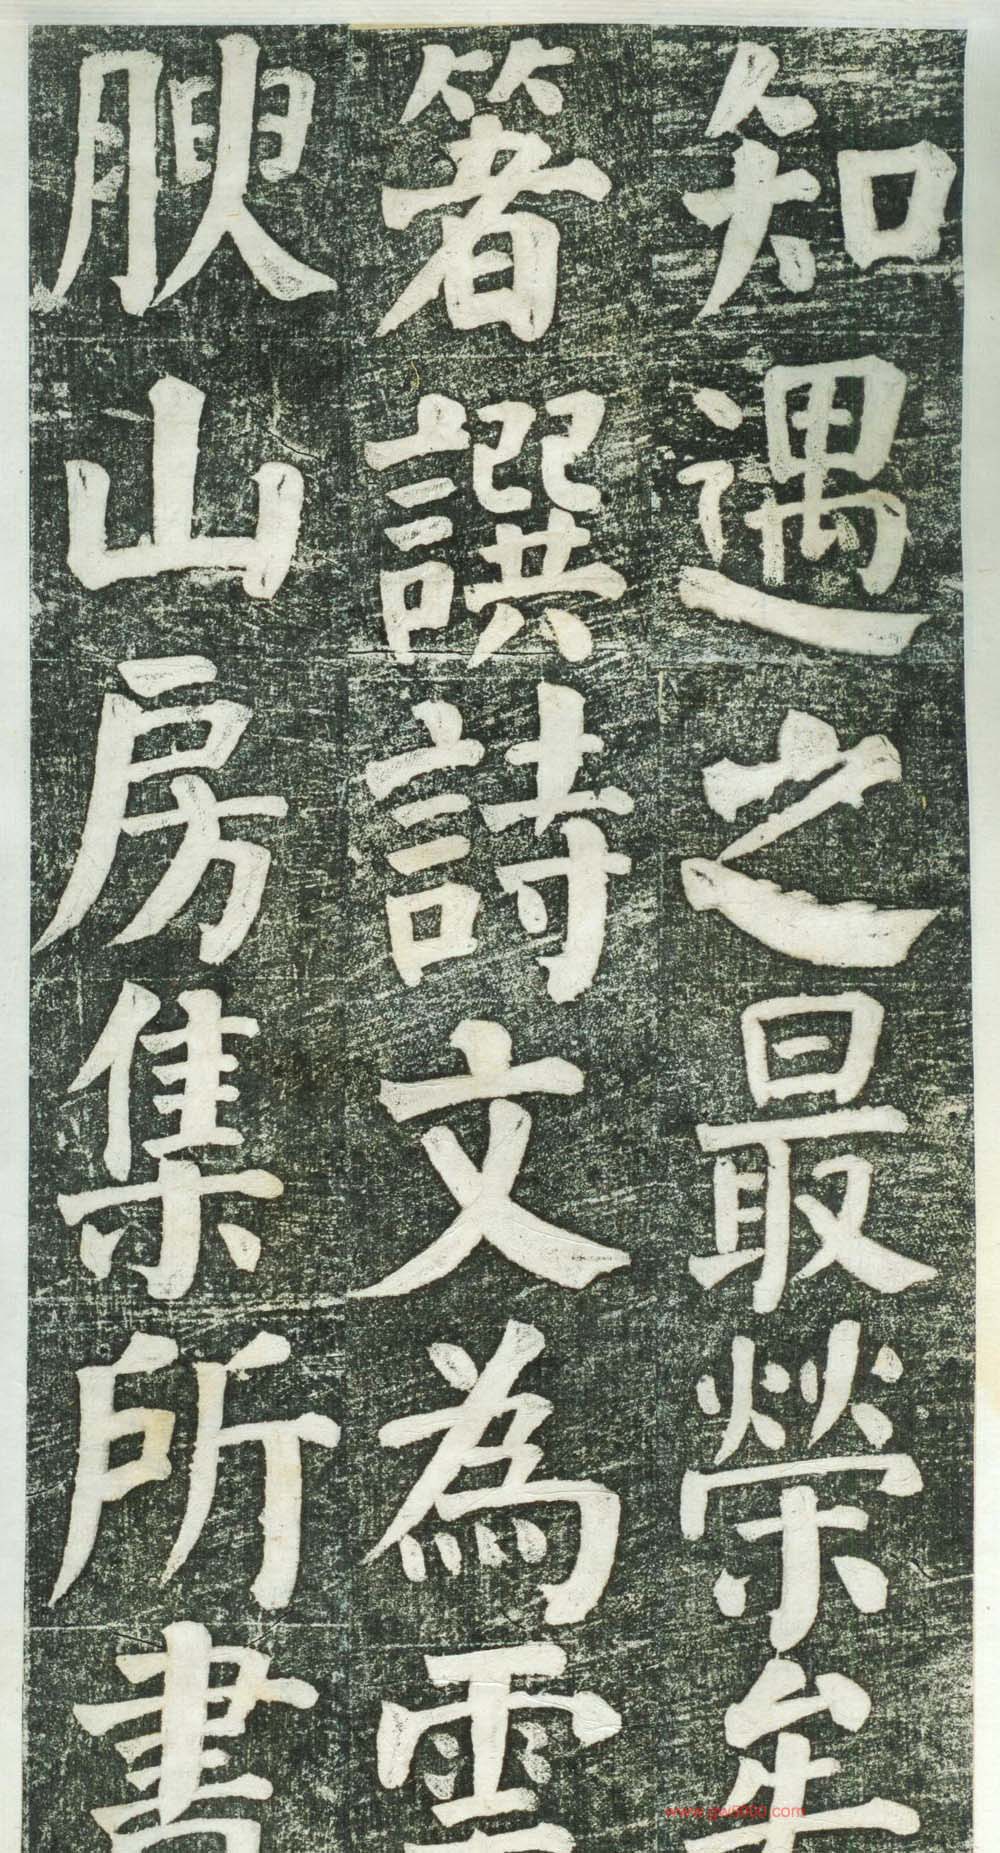 知遇之最榮矣
箸譔詩文為雲
腴山房集所書
www.gw5000.com